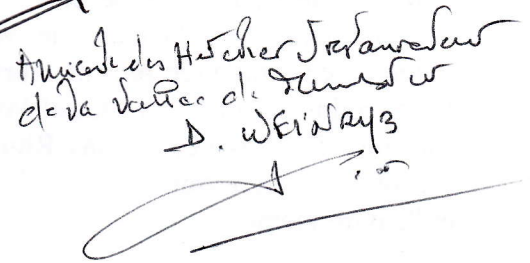 Amicale des Hôtelier Restaurateur
de la Vallée de
D. WEINRYB